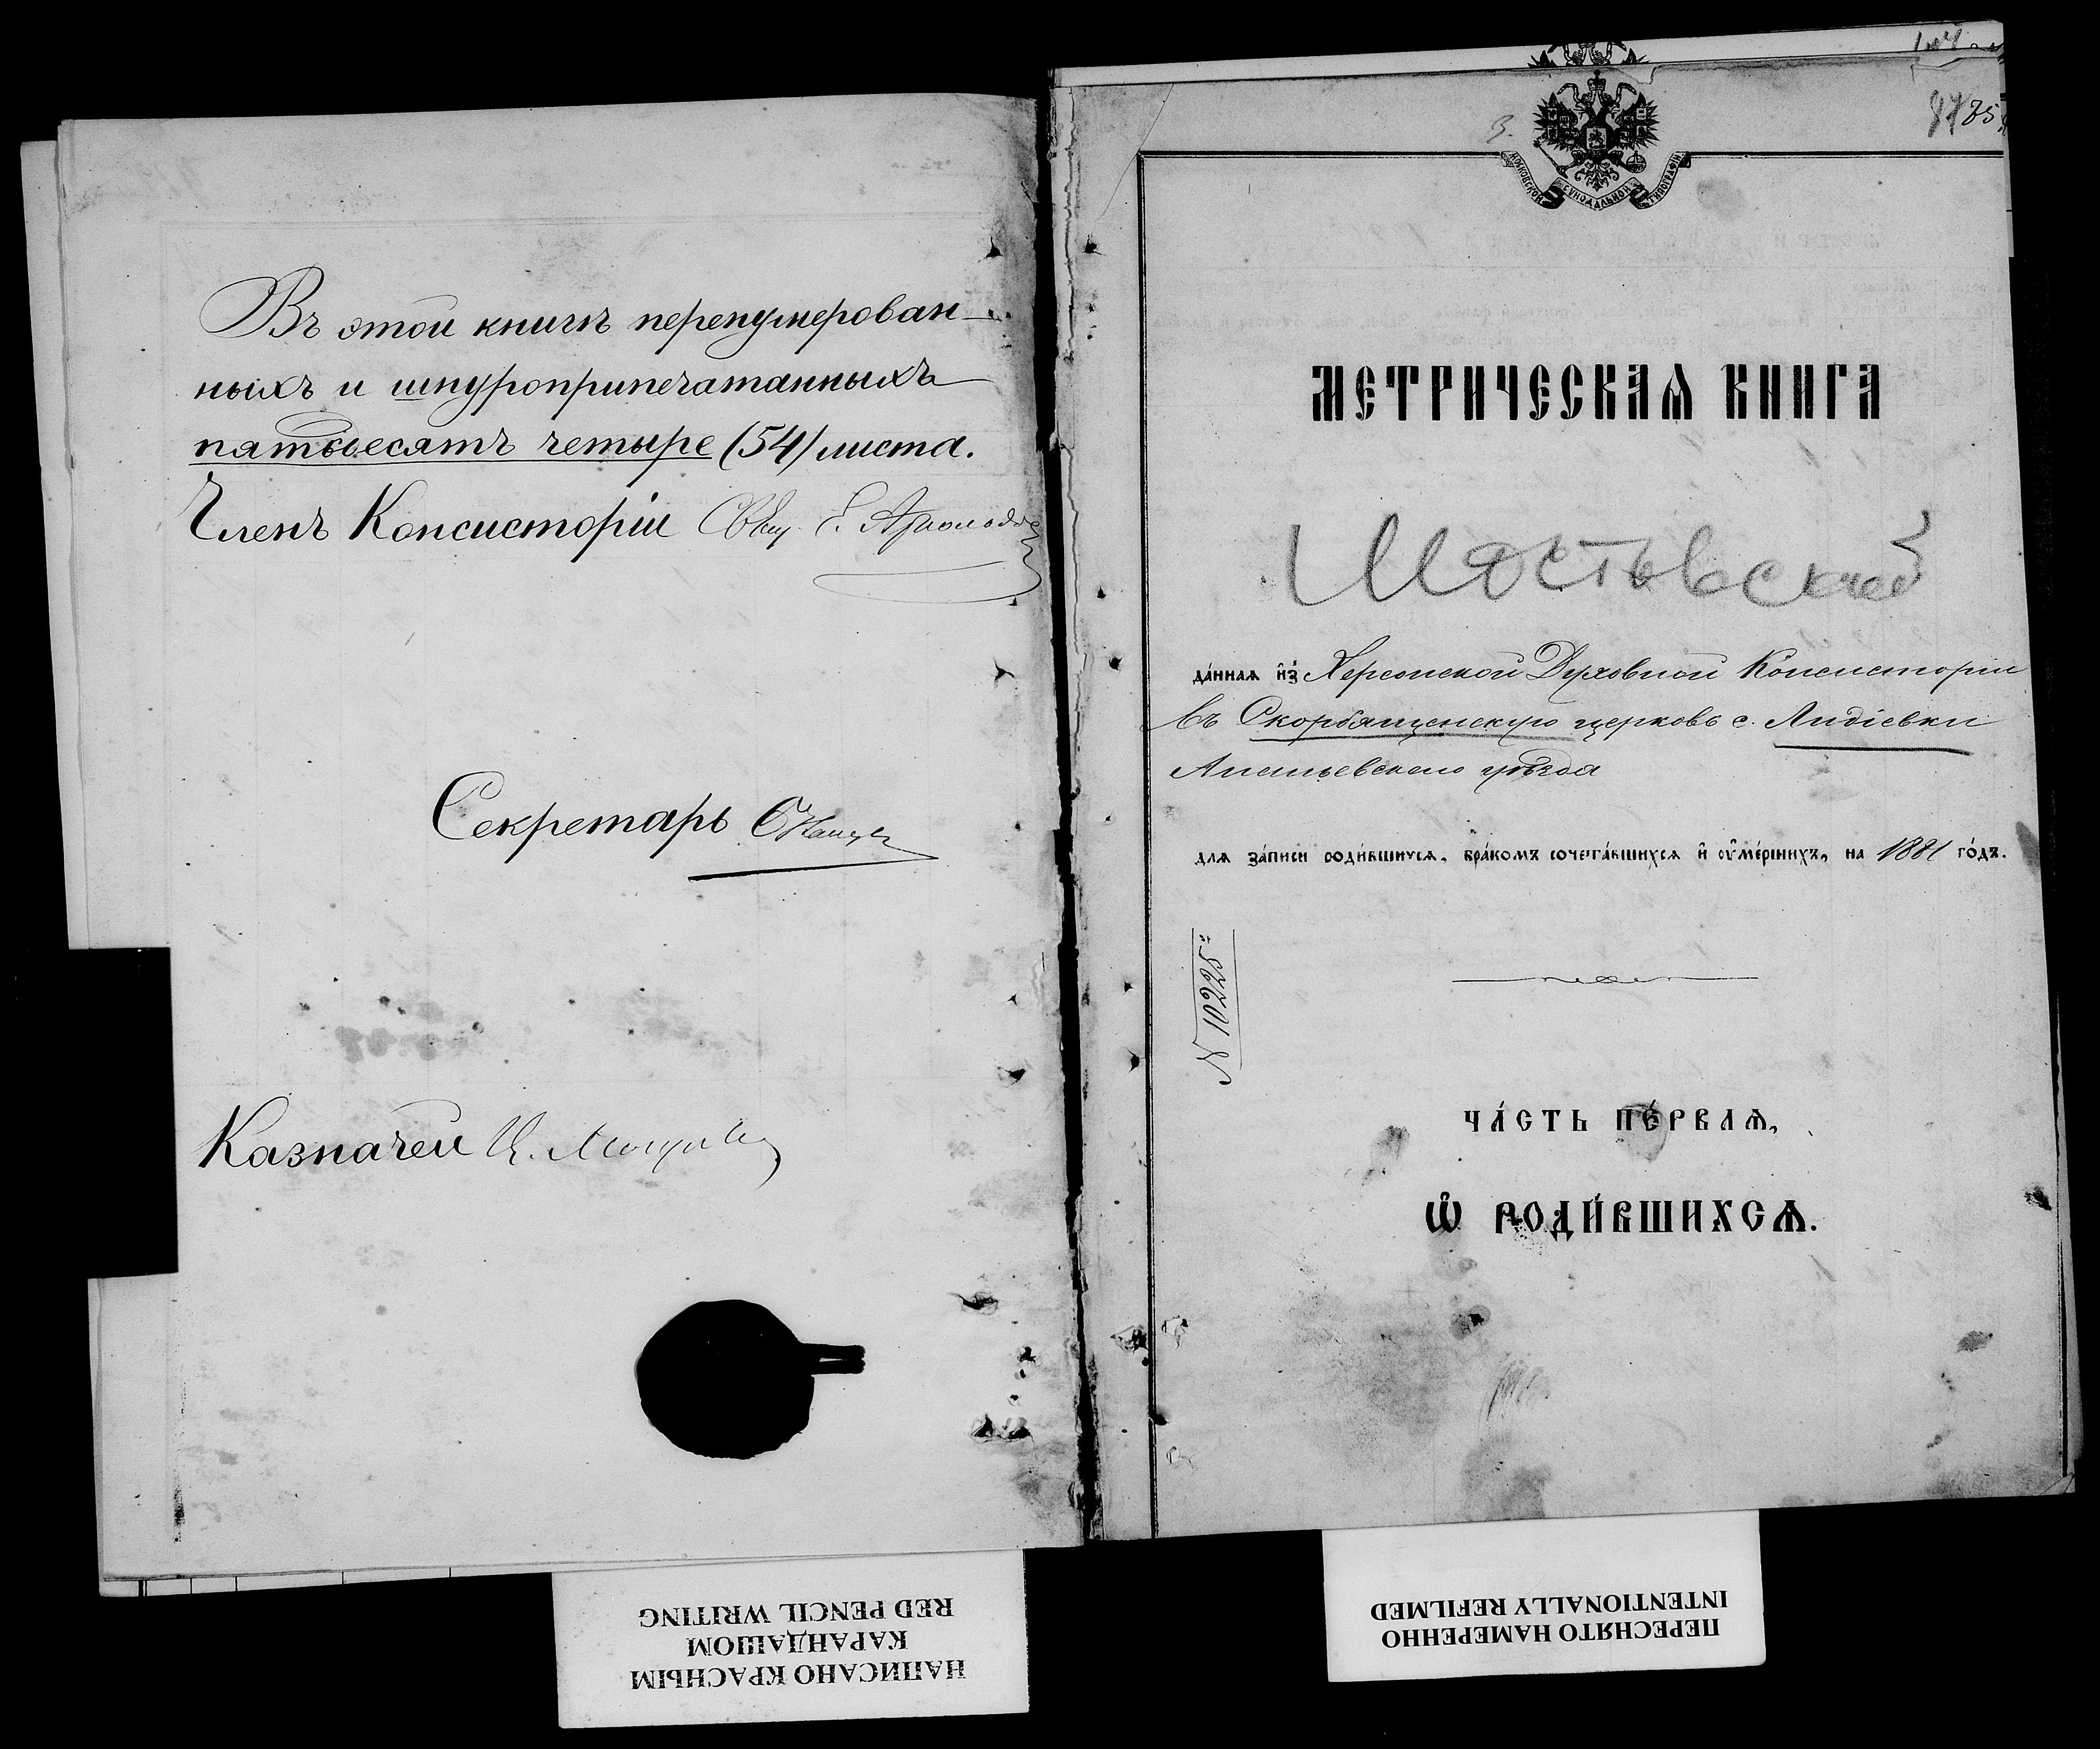 Въ этой книгѣ перенумерован-
ныхъ и шнуроприпечатанныхъ
пятьдесятъ четыре (54) листа.
Членъ Консисторіи
Секретарь
Казначей
НАПИСАНО КРАСНЫМ
КАРАНДАШОМ
RED PENCIL WRITING
3.
85
МОСКОВСКОЙ СѴНОДАЛЬНОЙ ТИПОГРАФІИ
МЕТРИЧЕСКАѦ КНИГА
да́ннаѧ и҆з̾ Херсонской Духовной Консисторіи
въ Скорбященскую церковь с. Лидіевки
Ананьевскаго уѣзда
длѧ за́писи роди́вшихсѧ, бра́комъ сочета́вшихсѧ и҆ ᲂу҆ме́ршихъ, на 1881 го́дъ.
N 10225
ЧА́СТЬ ПЕ́РВАѦ,
Ѽ РОДИ́ВШИХСѦ.
ПЕРЕСНЯТО НАМЕРЕННО
INTENTIONALLY REFILMED